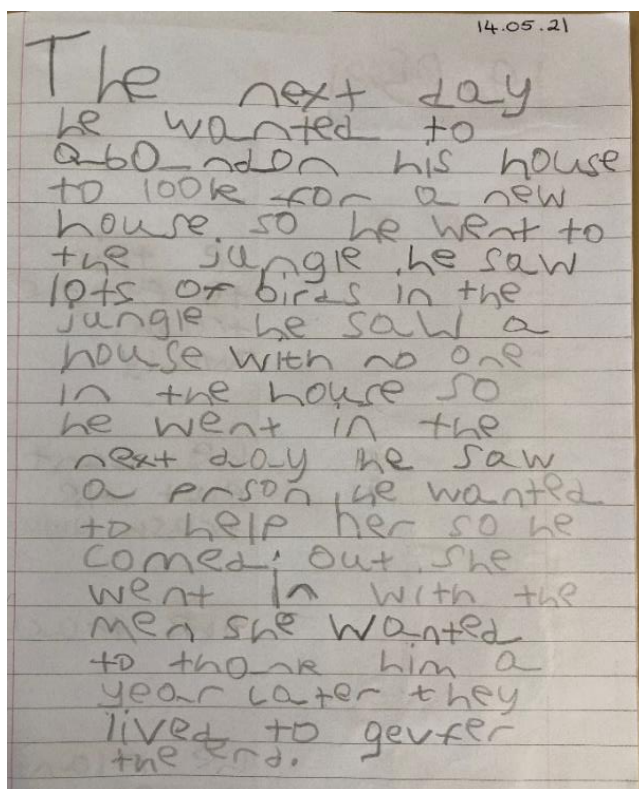 14.05.21
The next day
he wanted to
abondon his house
to look for a new
house. so he went to
the jungle. he saw
lots of birds in the
jungle he saw a
house with no one
in the house so
he went in the
next day he saw
a prson, he wanted
to help her so he
comed. out. she
went in with the
men she wanted
to thank him a
year later they
lived to gevfer
the end.